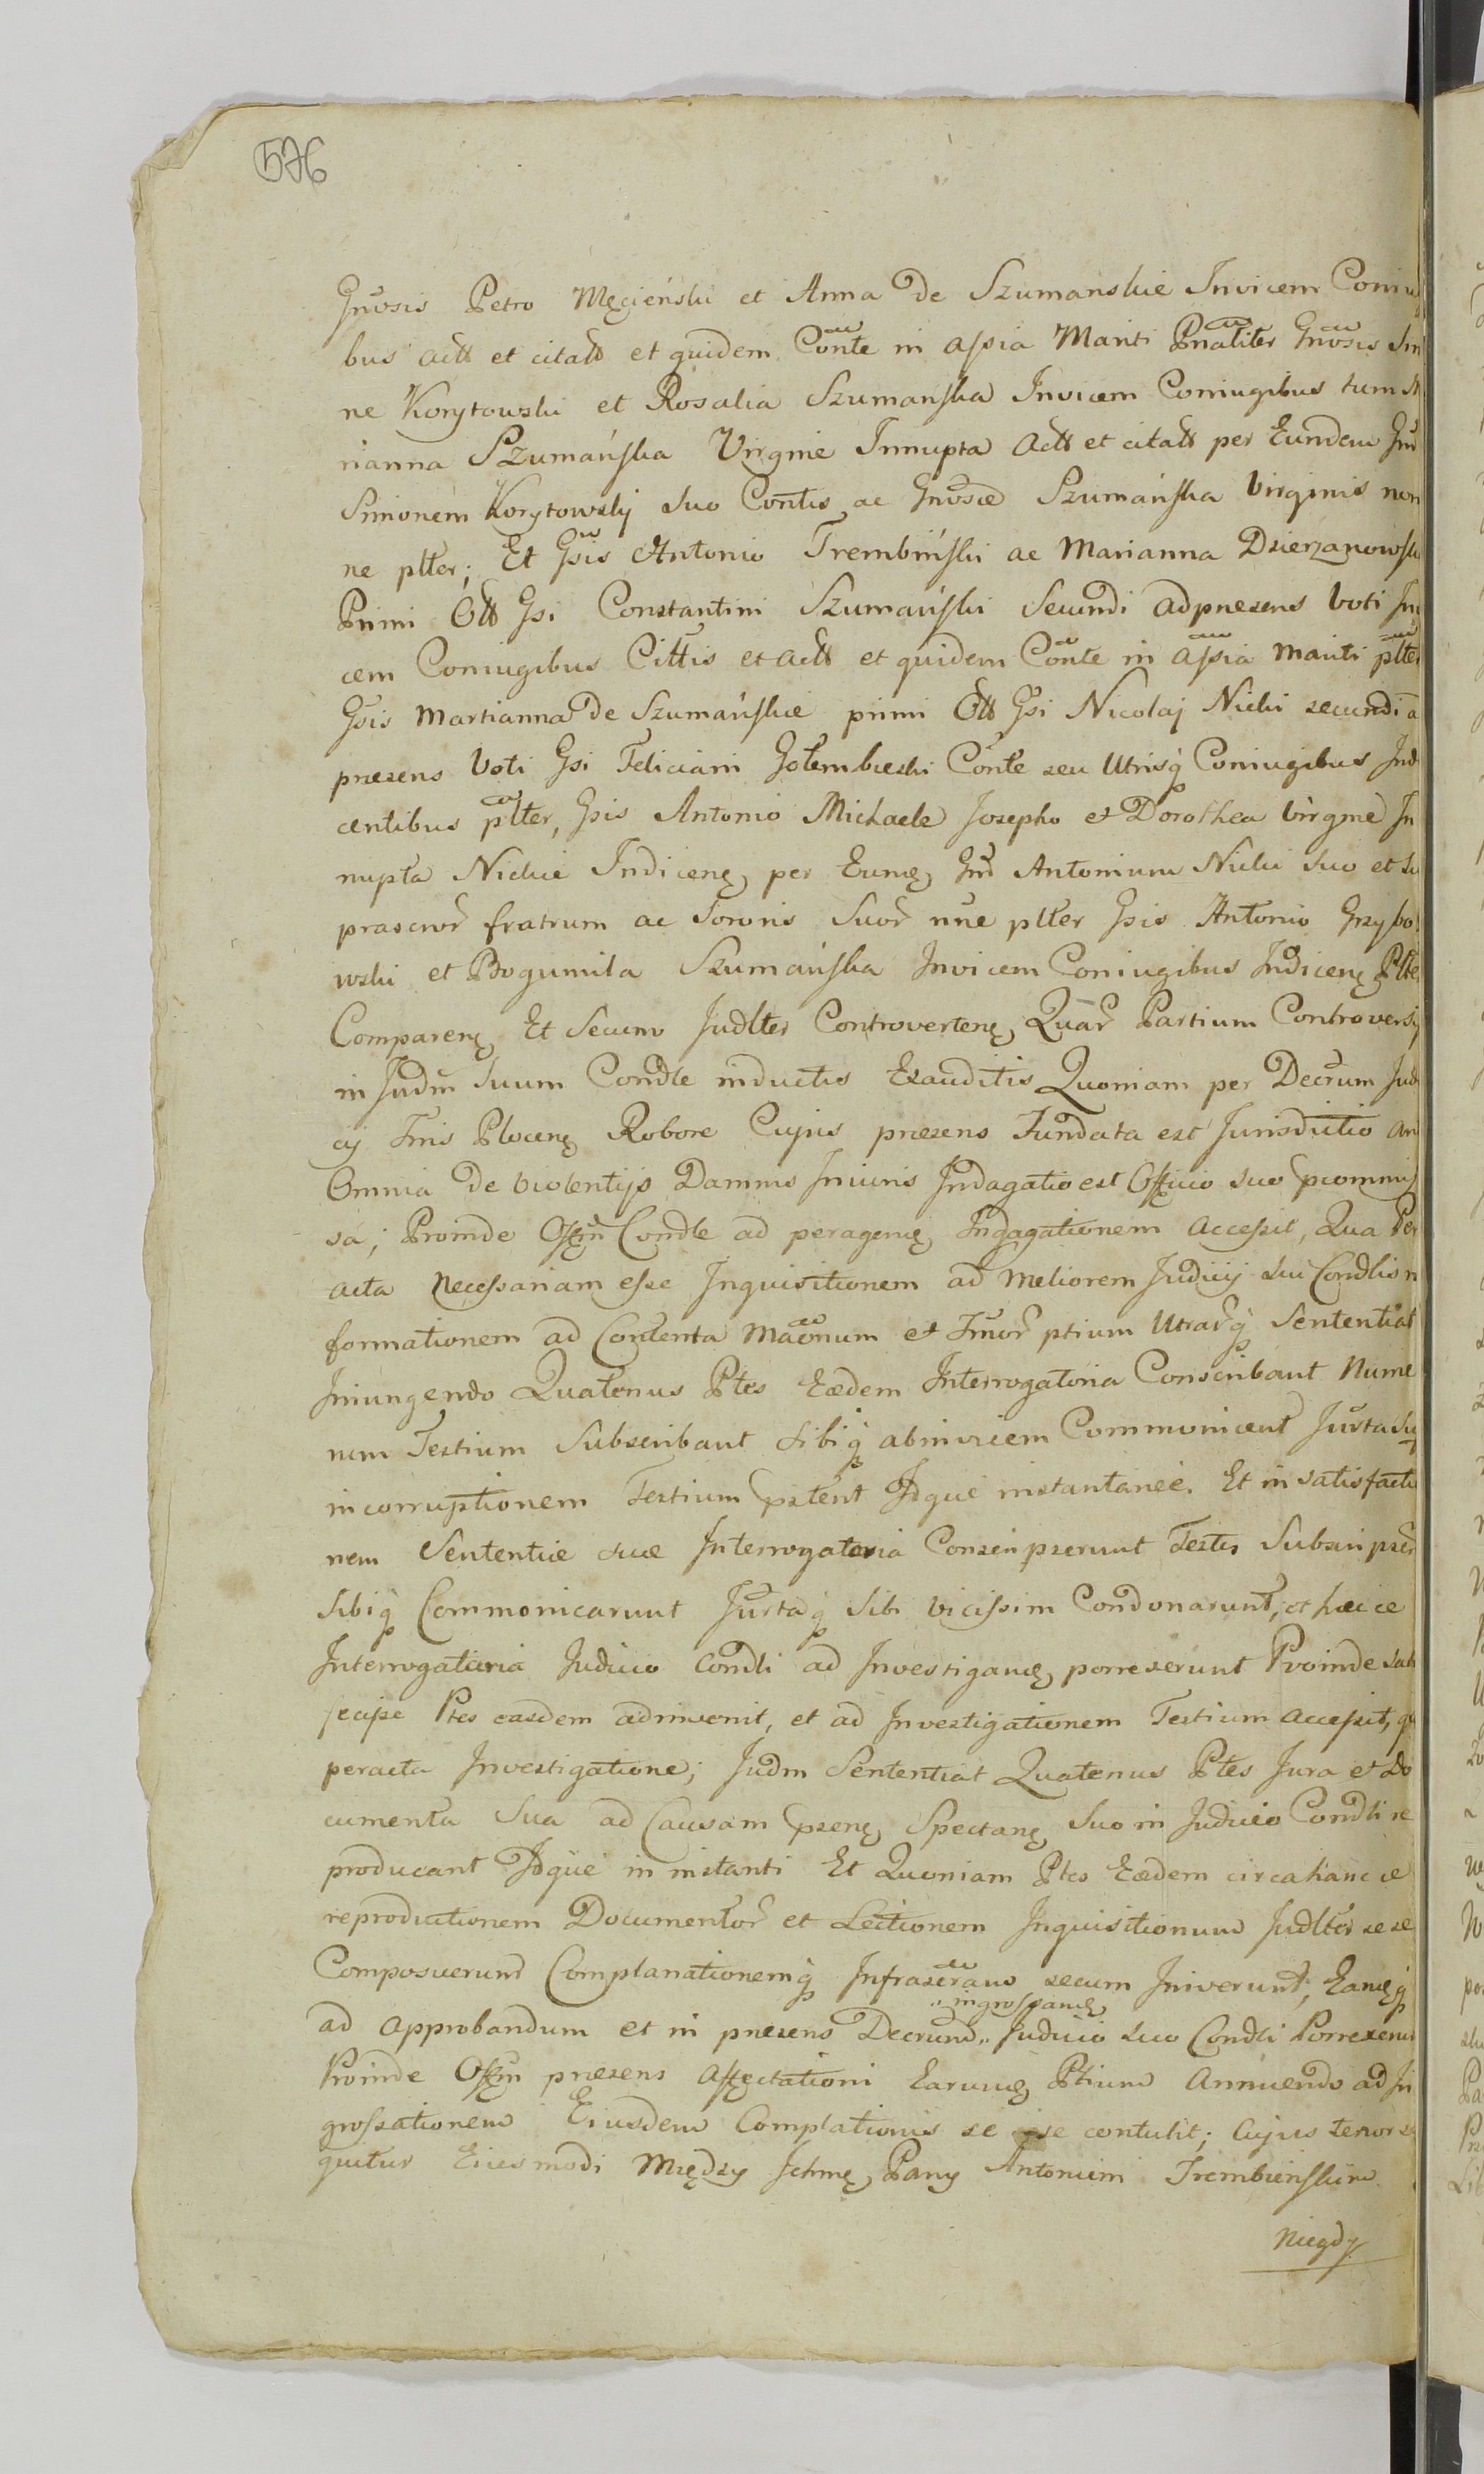 576
Gnosis Petro Męcieński et Anna de Szumanskie Invicem Coniu
bus actt et citatt et quidem Conte in assia Mariti Pnaliter Gnosis Sim
ne Korytowski et Rosalia Szumańska Invicem Coniugibus tum M
rianna Szumańska Virgine Innupta Actt et citatt per Eundem Gnd
Simonem Korytowski suo Contis ac Gnosae Szumańska Virginis nomi
ne plter; Et Gsis Antonio Trembiński ac Marianna Dzierzanowska
Primi Ott Gsi Constantini Szumański Secundi ad praesens voti In
cem Coniugibus Cittis et actt et quidem Conte in assia mariti plter
Gsis Martianna de Szumańskie primi Ott Gsi Nicolaj Nicki secundi a
praesens Voti Gsi Feliciani Gołembieski Conte seu Utrisq Coniugibus Ind
centibus plter, Gsis Antonio Michaele Josepho et Dorothea Virgine In
nupta Nickie Indicenę per Eumę Gnd Antonium Nicki suo et su
prascror fratrum ac sororis Suor nne plter Gsis Antonio Grzybo
wski et Bogumila Szumańska Invicem Coniugibus Indicenę Plter
Comparenę Et Secum Judlter Controvertenę, Quar Partium Controversij
in Judm Suum Condle inductis Exauditis Quoniam per Decrum Judi
cij Tnis Plocenę Robore Cujus praesens Fundata est Jurisdictio an
Omnia de violentijs Damnis Iniuris Indagatio est Officio suo praemmis
sa; Proinde Offm Condle ad peragenę Indagationem accessit, Qua Per
acta necessariam esse Inquisitionem ad meliorem Judicij sui Condlis in
formationem ad Contenta Maonum et Tmor ptium Utrarq Sententiat
Iniungendo Quatenus Ptes Eaedem Interrogatoria Conscribant Nume
rum Testium Subscribant sibiq abinvicem Communicent Jurta suq
incorruptionem Testium pstent Idque instantanee. Et in satisfactio
nem Sententiae suae Interrogatoria Conscripserunt Testes Subscripser
sibiq Commonicarunt Jurtaq sibi vicissim Condonarunt, et haecce
Interrogatoria Judicio Condli ad Investigamę porrexerunt Proinde satis
fecisse Ptes easdem adinvenit, et ad Investigationem Testium accessit, qu
peracta Investigatione; Judm Sententiat Quatenus Ptes Jura et Do
cumenta Sua ad Causam psenę Spectanę Suo in Judicio Condli re
producant Idque in instanti Et Quoniam Ptes Eaedem circa hanc ce
reproductionem Documentor et Lectionem Inquisitionum Judlter sese
Composuerunt Complanationemq Infrascram secum Iniverunt; Eamęq
ad approbandum et in praesens Decrum „ingrossamę„ Judicio suo Condli Porrexerun
Proinde Offm praesens affectationi Earumę Ptium Annuendo ad In
grossationem Eiusdem Complationis se se contulit; Cujus tenor se
quitur Eiusmodi Między Jchmę Pany Antonim Trembienskim
niegdy